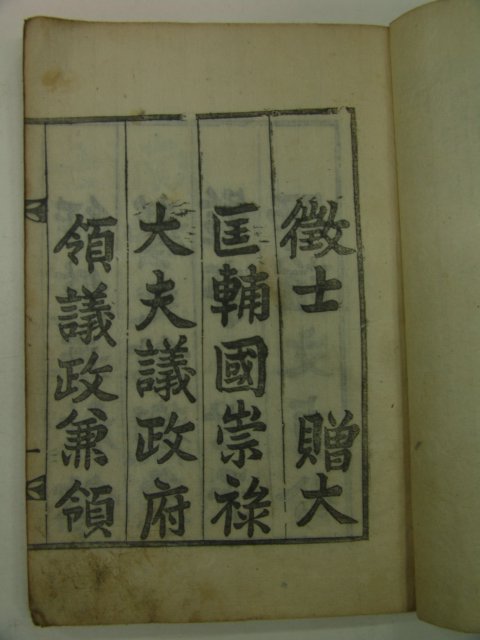 徵士 贈大
匡輔國崇祿
大夫議政府
領議政兼領